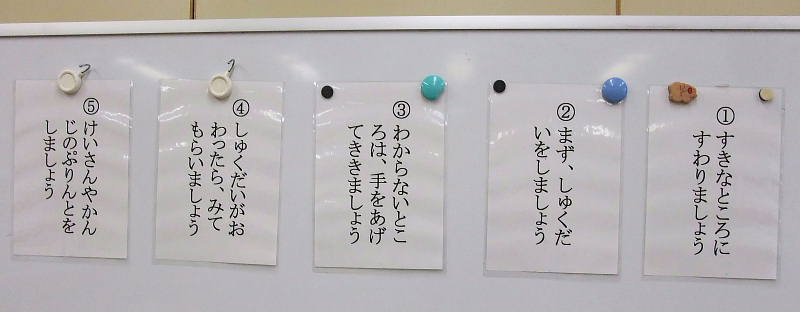 ①すきなところに
すわりましょう
②まず、しゅくだ
いをしましょう
③わからないとこ
ろは、手をあげ
てききましょう
④しゅくだいがお
わったら、みて
もらいましょう
⑤けいさんやかん
じのぷりんとを
しましょう